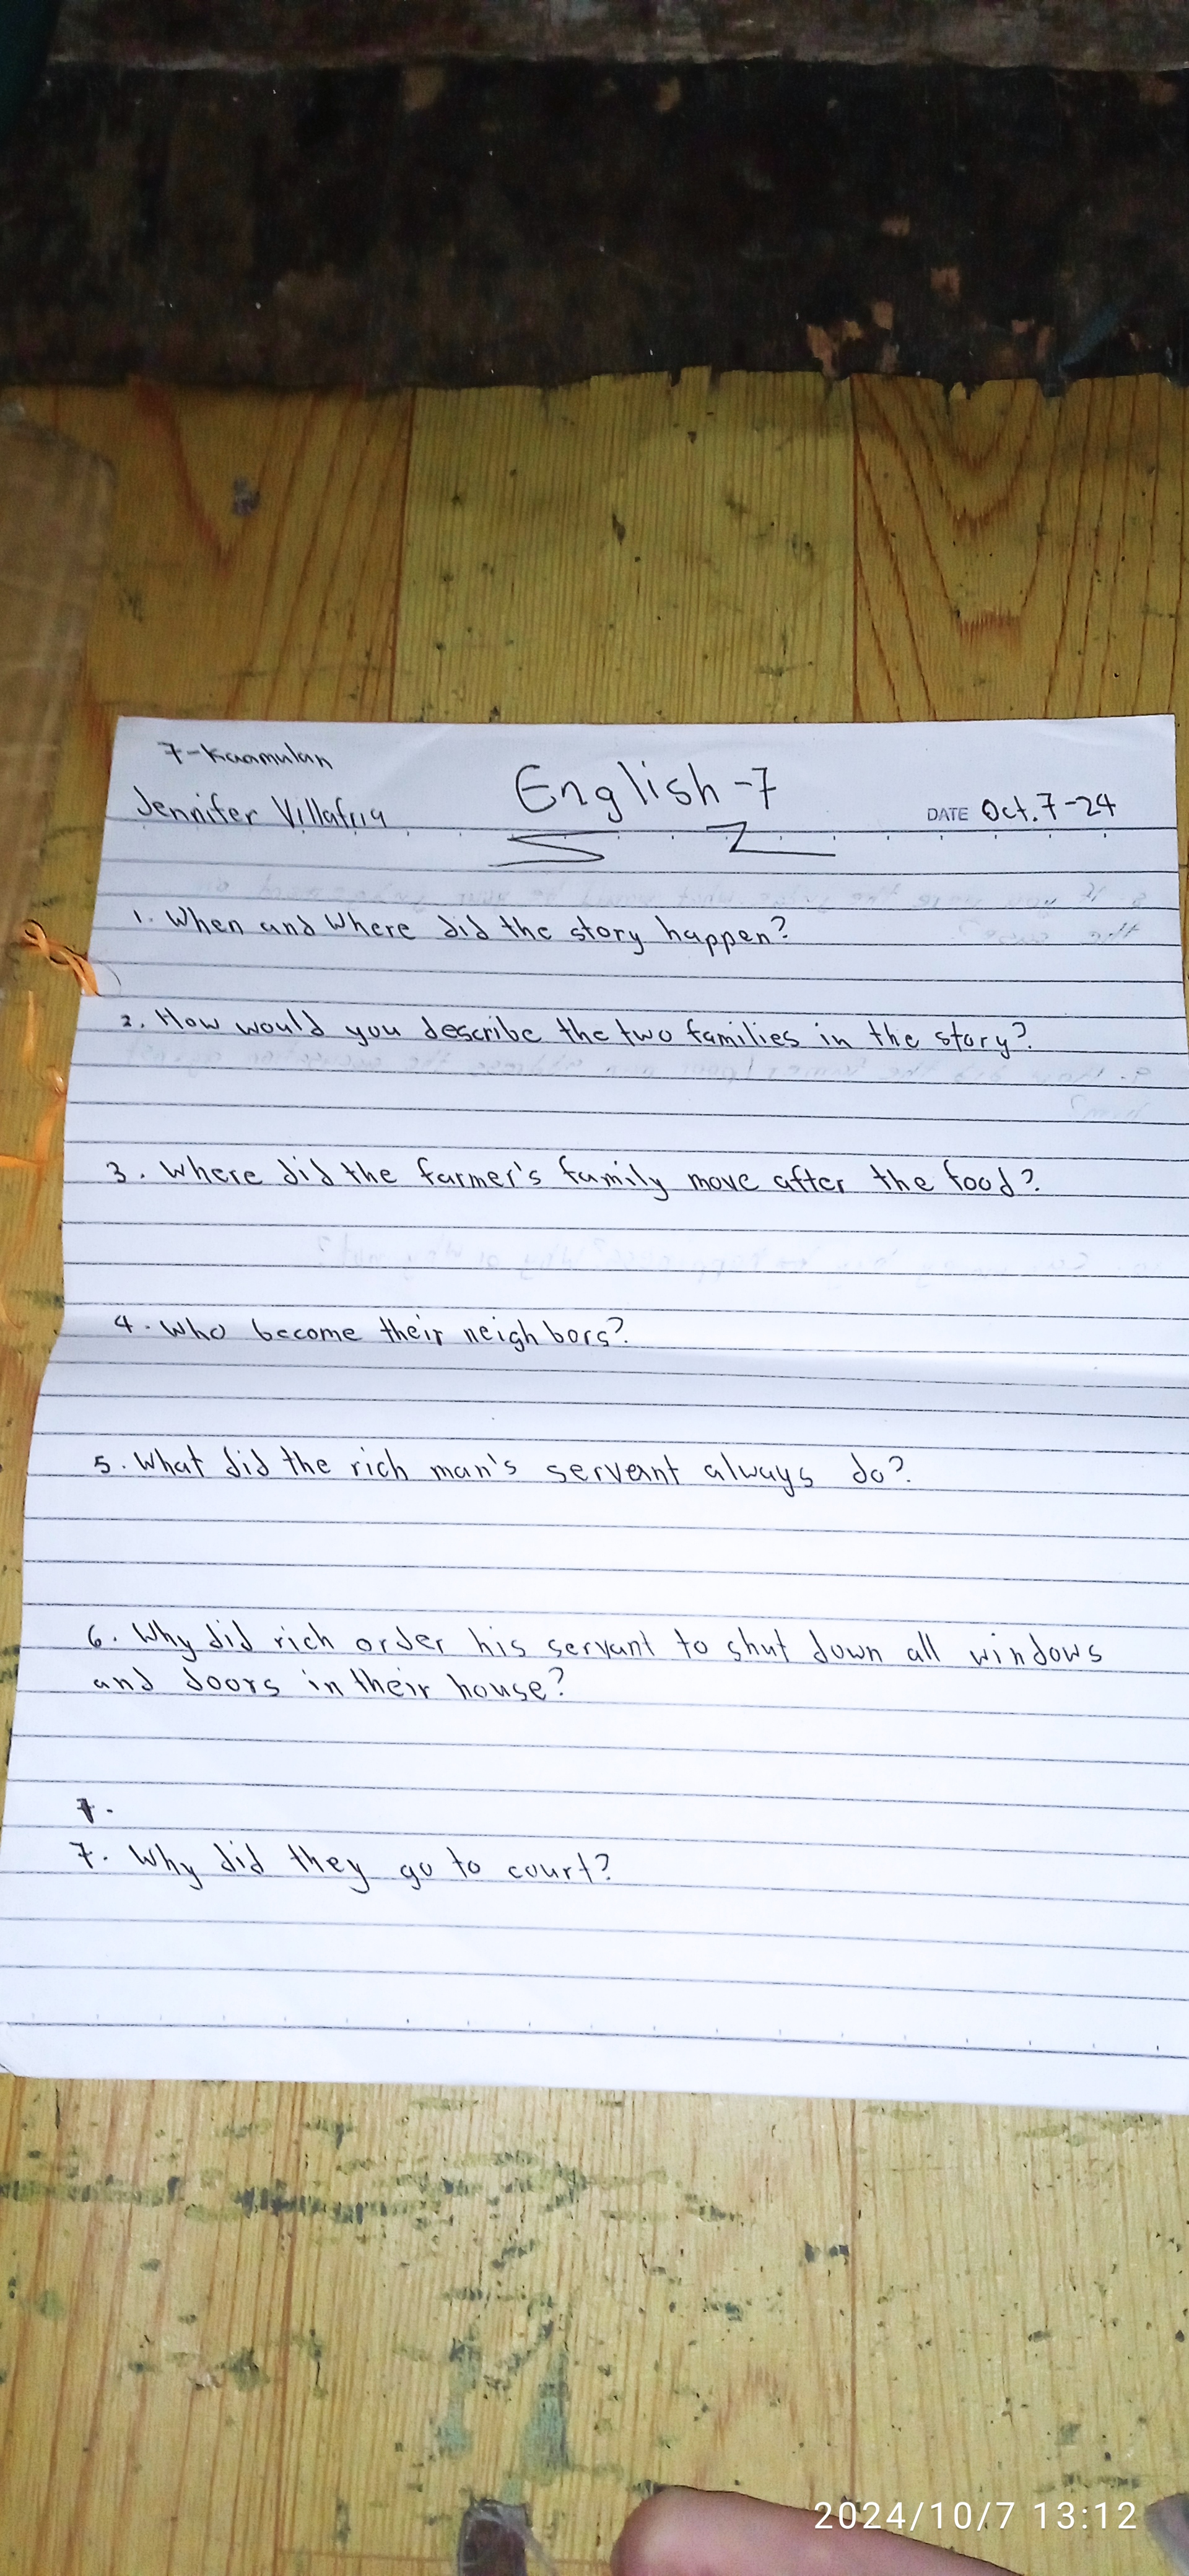 7-Kaamulan
English-7
Jennifer Villafria
DATE Oct. 7-24
1. When and Where did the story happen?
2. How would you describe the two families in the story?
3. Where did the farmer's family move after the food?
4. Who become their neighbors?
5. What did the rich man's servant always do?
6. Why did rich order his servant to shut down all windows
and doors in their house?
7.
7. Why did they go to court?
2024/10/7 13:12